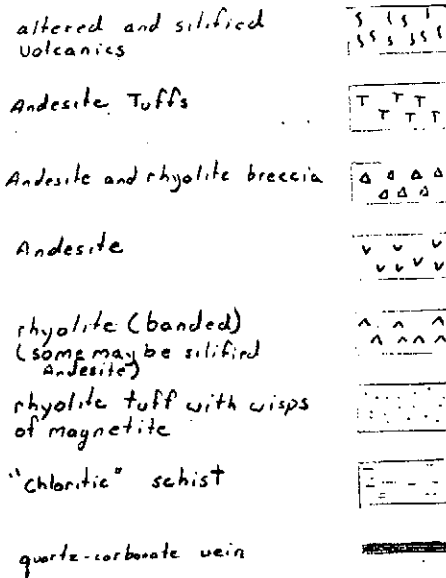 altered and silified
volcanics
Andesite Tuffs
Andesite and rhyolite breccia
Andesite
rhyolite (banded)
(some may be silified
Andesite)
rhyolite tuff with wisps
of magnetite
"Chloritic" schist
quartz-carbonate vein